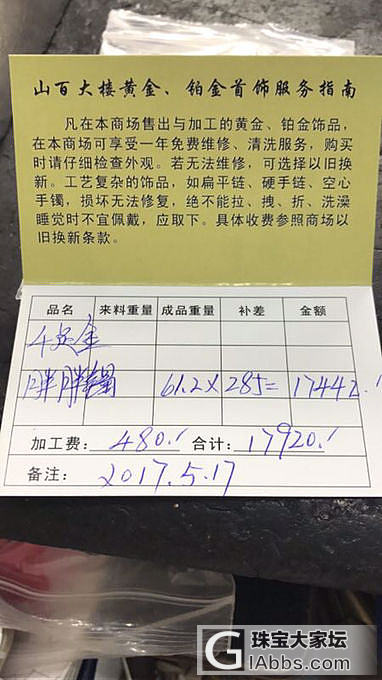 山百大楼黄金、铂金首饰服务指南
凡在本商场售出与加工的黄金、铂金饰品，
在本商场可享受一年免费维修、清洗服务，购买
时请仔细检查外观。若无法维修，可选择以旧换
新。工艺复杂的饰品，如扁平链、硬手链、空心
手镯，损坏无法修复，绝不能拉、拽、折、洗澡
睡觉时不宜佩戴，应取下。具体收费参照商场以
旧换新条款。
品名 来料重量 成品重量 补差 金额
千足金
胖胖 61.2× 285= 17442.
加工费： 480. 合计： 17920.
备注： 2017.5.17
珠宝大家坛
GIAbbs.com